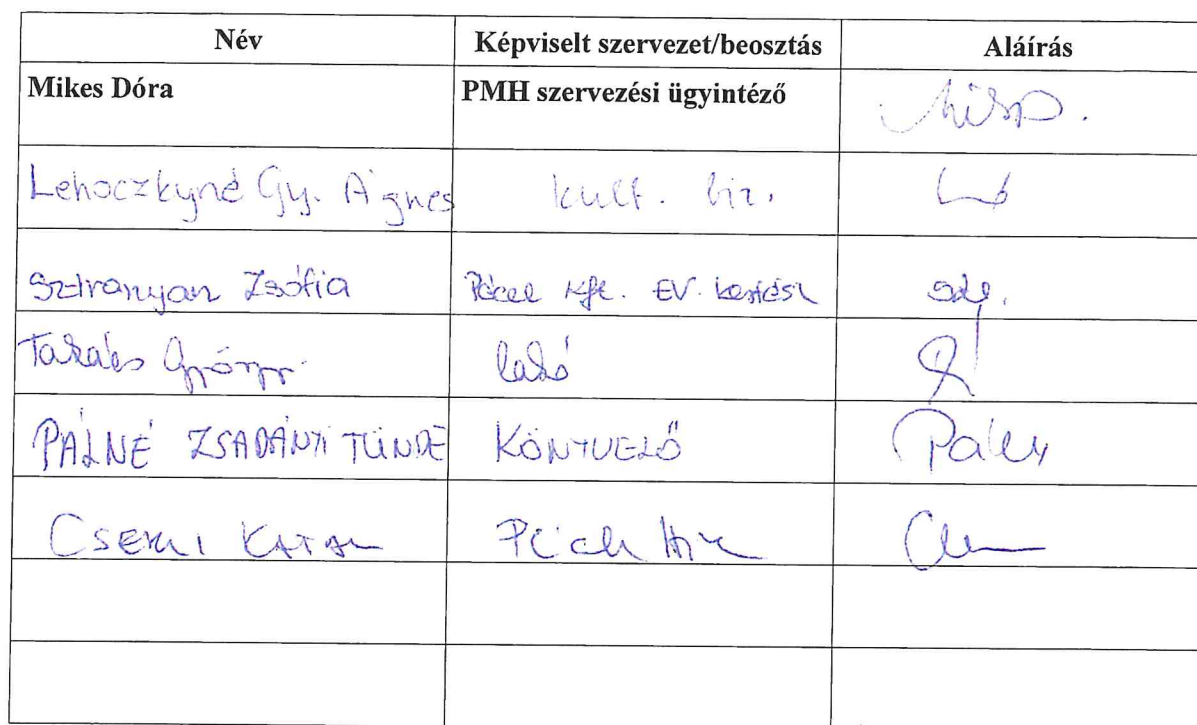 Név Képviselt szervezet/beosztás Aláírás
Mikes Dóra PMH szervezési ügyintéző
Lehoczkyné Gy. Ágnes kult. biz.
Sziranyan Zsófia Pécel Kft. EV.
Takács György lakó
PÁLNÉ ZSADÁNYI TÜNDE KÖNYVELŐ
CSERNI KATAL Pécel Hír